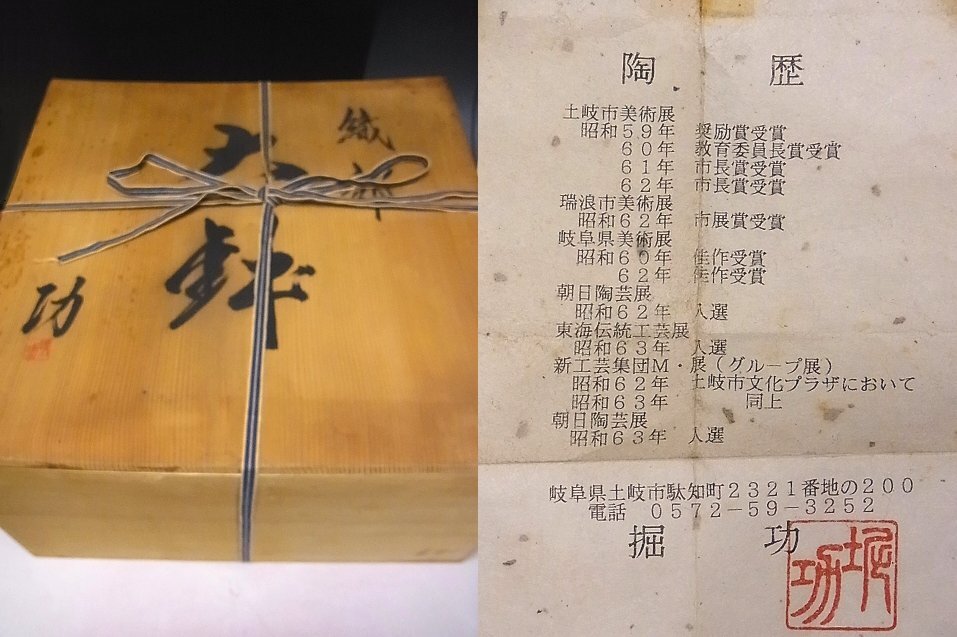 織部
大鉢
功
陶歴
土岐市美術展
昭和59年 奨励賞受賞
60年 教育委員長賞受賞
61年 市長賞受賞
62年 市長賞受賞
瑞浪市美術展
昭和62年 市展賞受賞
岐阜県美術展
昭和60年 佳作受賞
62年 佳作受賞
朝日陶芸展
昭和62年 入選
東海伝統工芸展
昭和63年 入選
新工芸集団M・展(グループ展)
昭和62年 土岐市文化プラザにおいて
昭和63年 同上
朝日陶芸展
昭和63年 入選
岐阜県土岐市駄知町2321番地の200
電話 0572-59-3252
掘 功